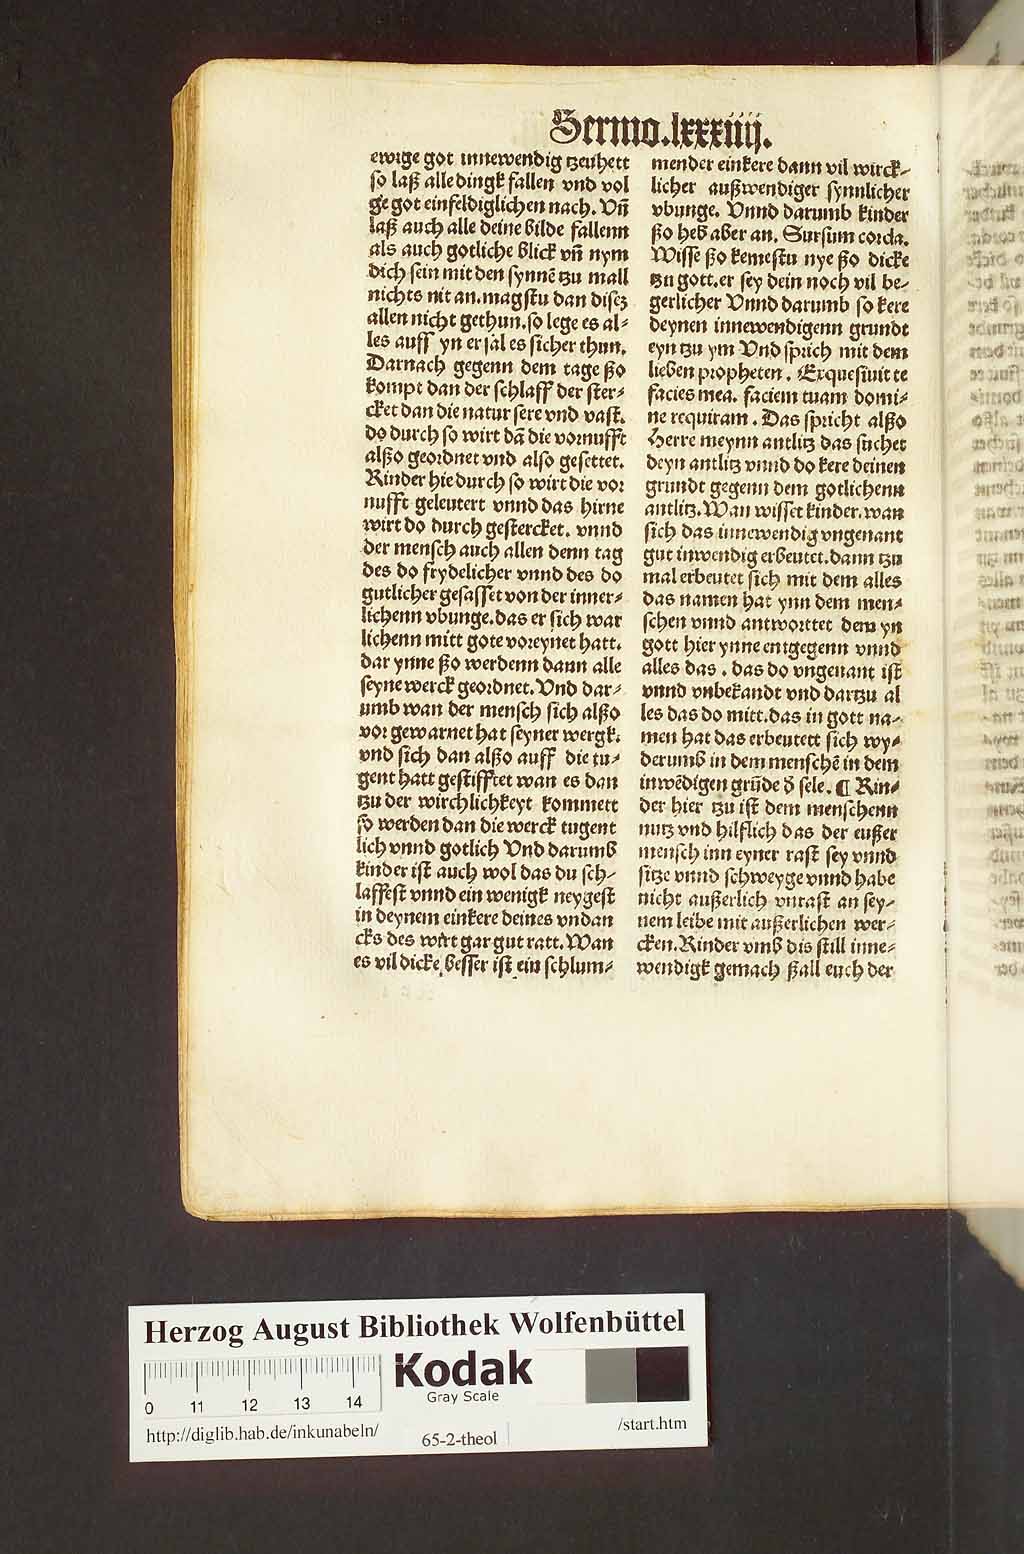 Sermo.lxxxiiij.
ewige got innewendig tzeuhett
so laß alle dingk fallen vnd vol
ge got einfeldiglichen nach. Vn̄
laß auch alle deine bilde fallenn
als auch gotliche blick vn̄ nym
dich sein mit den synnē tzu mall
nichts nit an. magstu dan disez
allen nicht gethun. so lege es al-
les auff yn er sal es sicher thun.
Darnach gegenn dem tage ßo
kompt dan der schlaff der ster-
cket dan die natur sere vnd vast.
do durch so wirt dā die vornufft
alßo geordnet vnd also gesettet.
Kinder hie durch so wirt die vor
nufft geleutert vnnd das hirne
wirt do durch gestercket. vnnd
der mensch auch allen denn tag
des do frydelicher vnnd des do
gutlicher gesasset von der inner-
lichenn vbunge. das er sich war
lichenn mitt gote voreynet hatt.
dar ynne ßo werdenn dann alle
seyne werck geordnet. Vnd dar-
umb wan der mensch sich alßo
vor gewarnet hat seyner wergk.
vnd sich dan alßo auff die tu-
gent hatt gestifftet wan es dan
tzu der wirchlichkeyt kommett
so werden dan die werck tugent
lich vnnd gotlich Vnd darumb
kinder ist auch wol das du sch-
laffest vnnd ein wenigk neygest
in deynem einkere deines vndan
cks des wirt gar gut ratt. Wan
es vil dicke besser ist ein schlum-
mender einkere dann vil wirck-
licher außwendiger synnlicher
vbunge. Vnnd darumb kinder
ßo heb aber an. Sursum corda.
Wisse ßo kemestu nye ßo dicke
tzu gott. er sey dein noch vil be-
gerlicher Vnnd darumb so kere
deynen innewendigenn grundt
eyn tzu ym Vnd sprich mit dem
lieben propheten. Exquesiuit te
facies mea. faciem tuam domi-
ne requiram. Das spricht alßo
Herre meynn antlitz das suchet
deyn antlitz vnnd do kere deinen
grundt gegenn dem gotlichenn
antlitz. Wan wisset kinder. wan
sich das innewendig vngenant
gut inwendig erbeutet. dann tzu
mal erbeutet sich mit dem alles
das namen hat ynn dem men-
schen vnnd antworttet dem yn
gott hier ynne entgegenn vnnd
alles das. das do vngenant ist
vnnd vnbekandt vnd dartzu al
les das do mitt. das in gott na-
men hat das erbeutett sich wy-
derumb in dem menschē in dem
inwēdigen grūde d̓ sele. ¶ Kin-
der hier tzu ist dem menschenn
nutz vnd hilflich das der eußer
mensch inn eyner rast sey vnnd
sitze vnnd schweyge vnnd habe
nicht außerlich vnrast an sey-
nem leibe mit außerlichen wer-
cken. Kinder vmb dis still inne-
wendigk gemach ßall euch der
Herzog August Bibliothek Wolfenbüttel
Kodak
Gray Scale
0 11 12 13 14
http://diglib.hab.de/inkunabeln/ 65-2-theol /start.htm